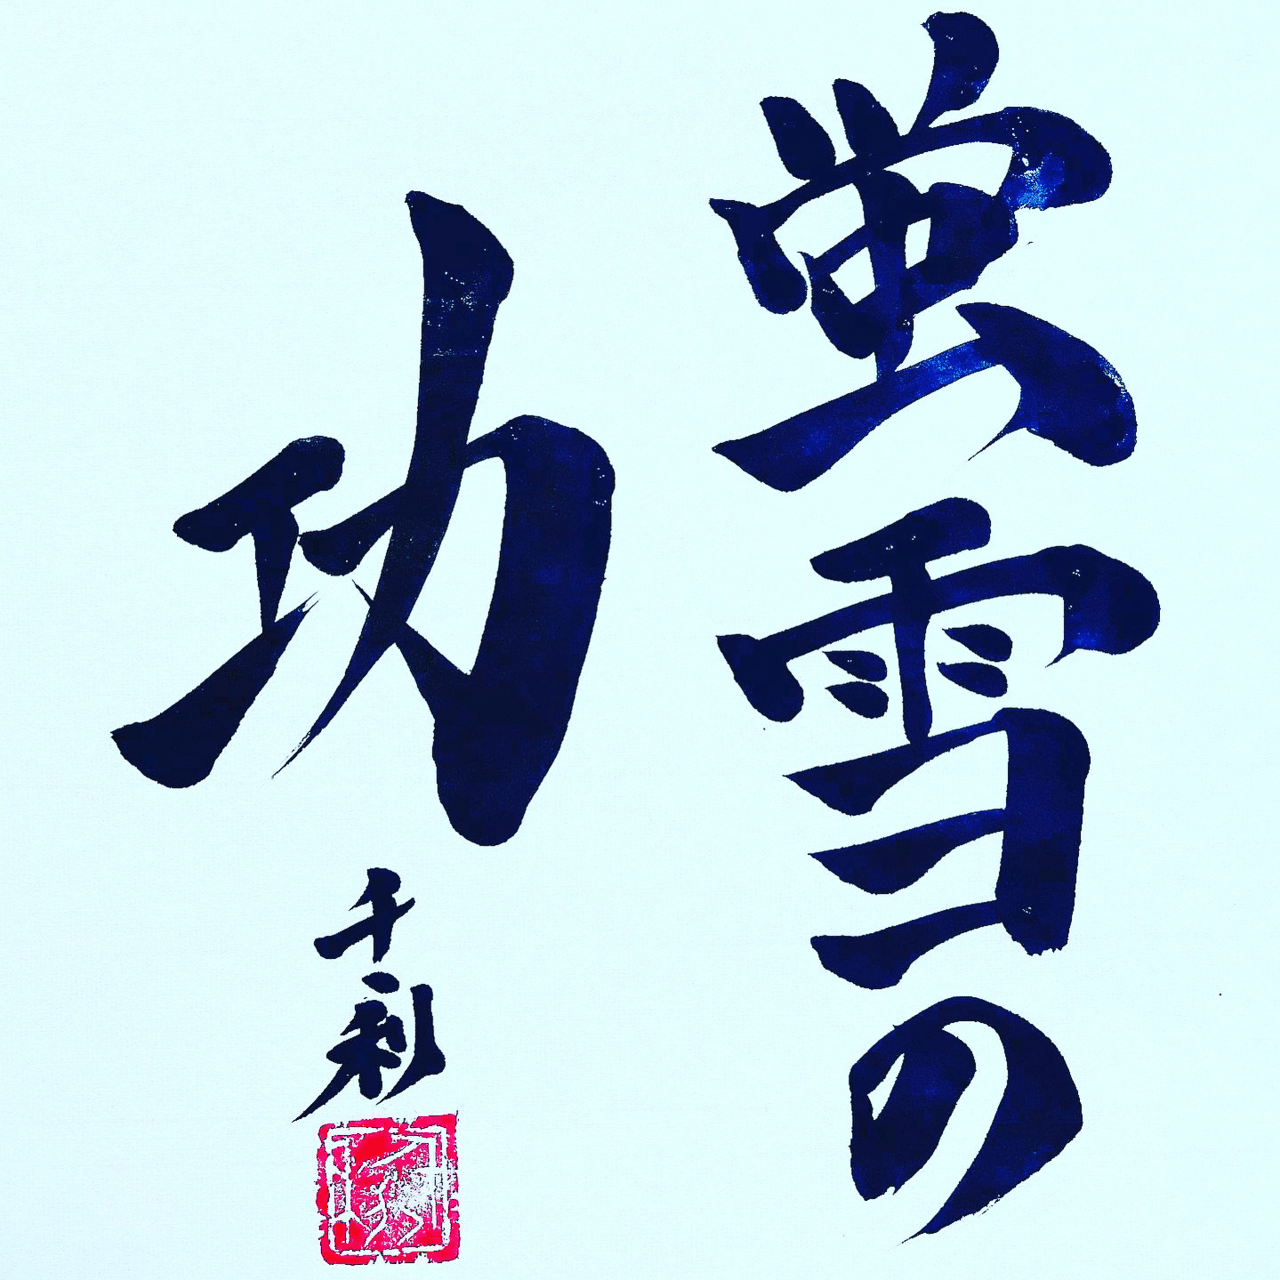 蛍雪の
功
千